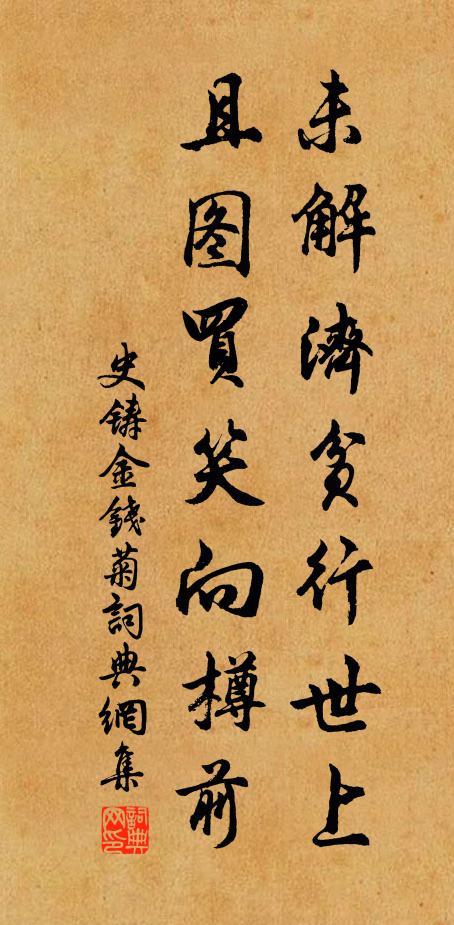 未解濟貧行世上
且图買笑向樽前
史鑄金錢菊詞典網集
詞典网印